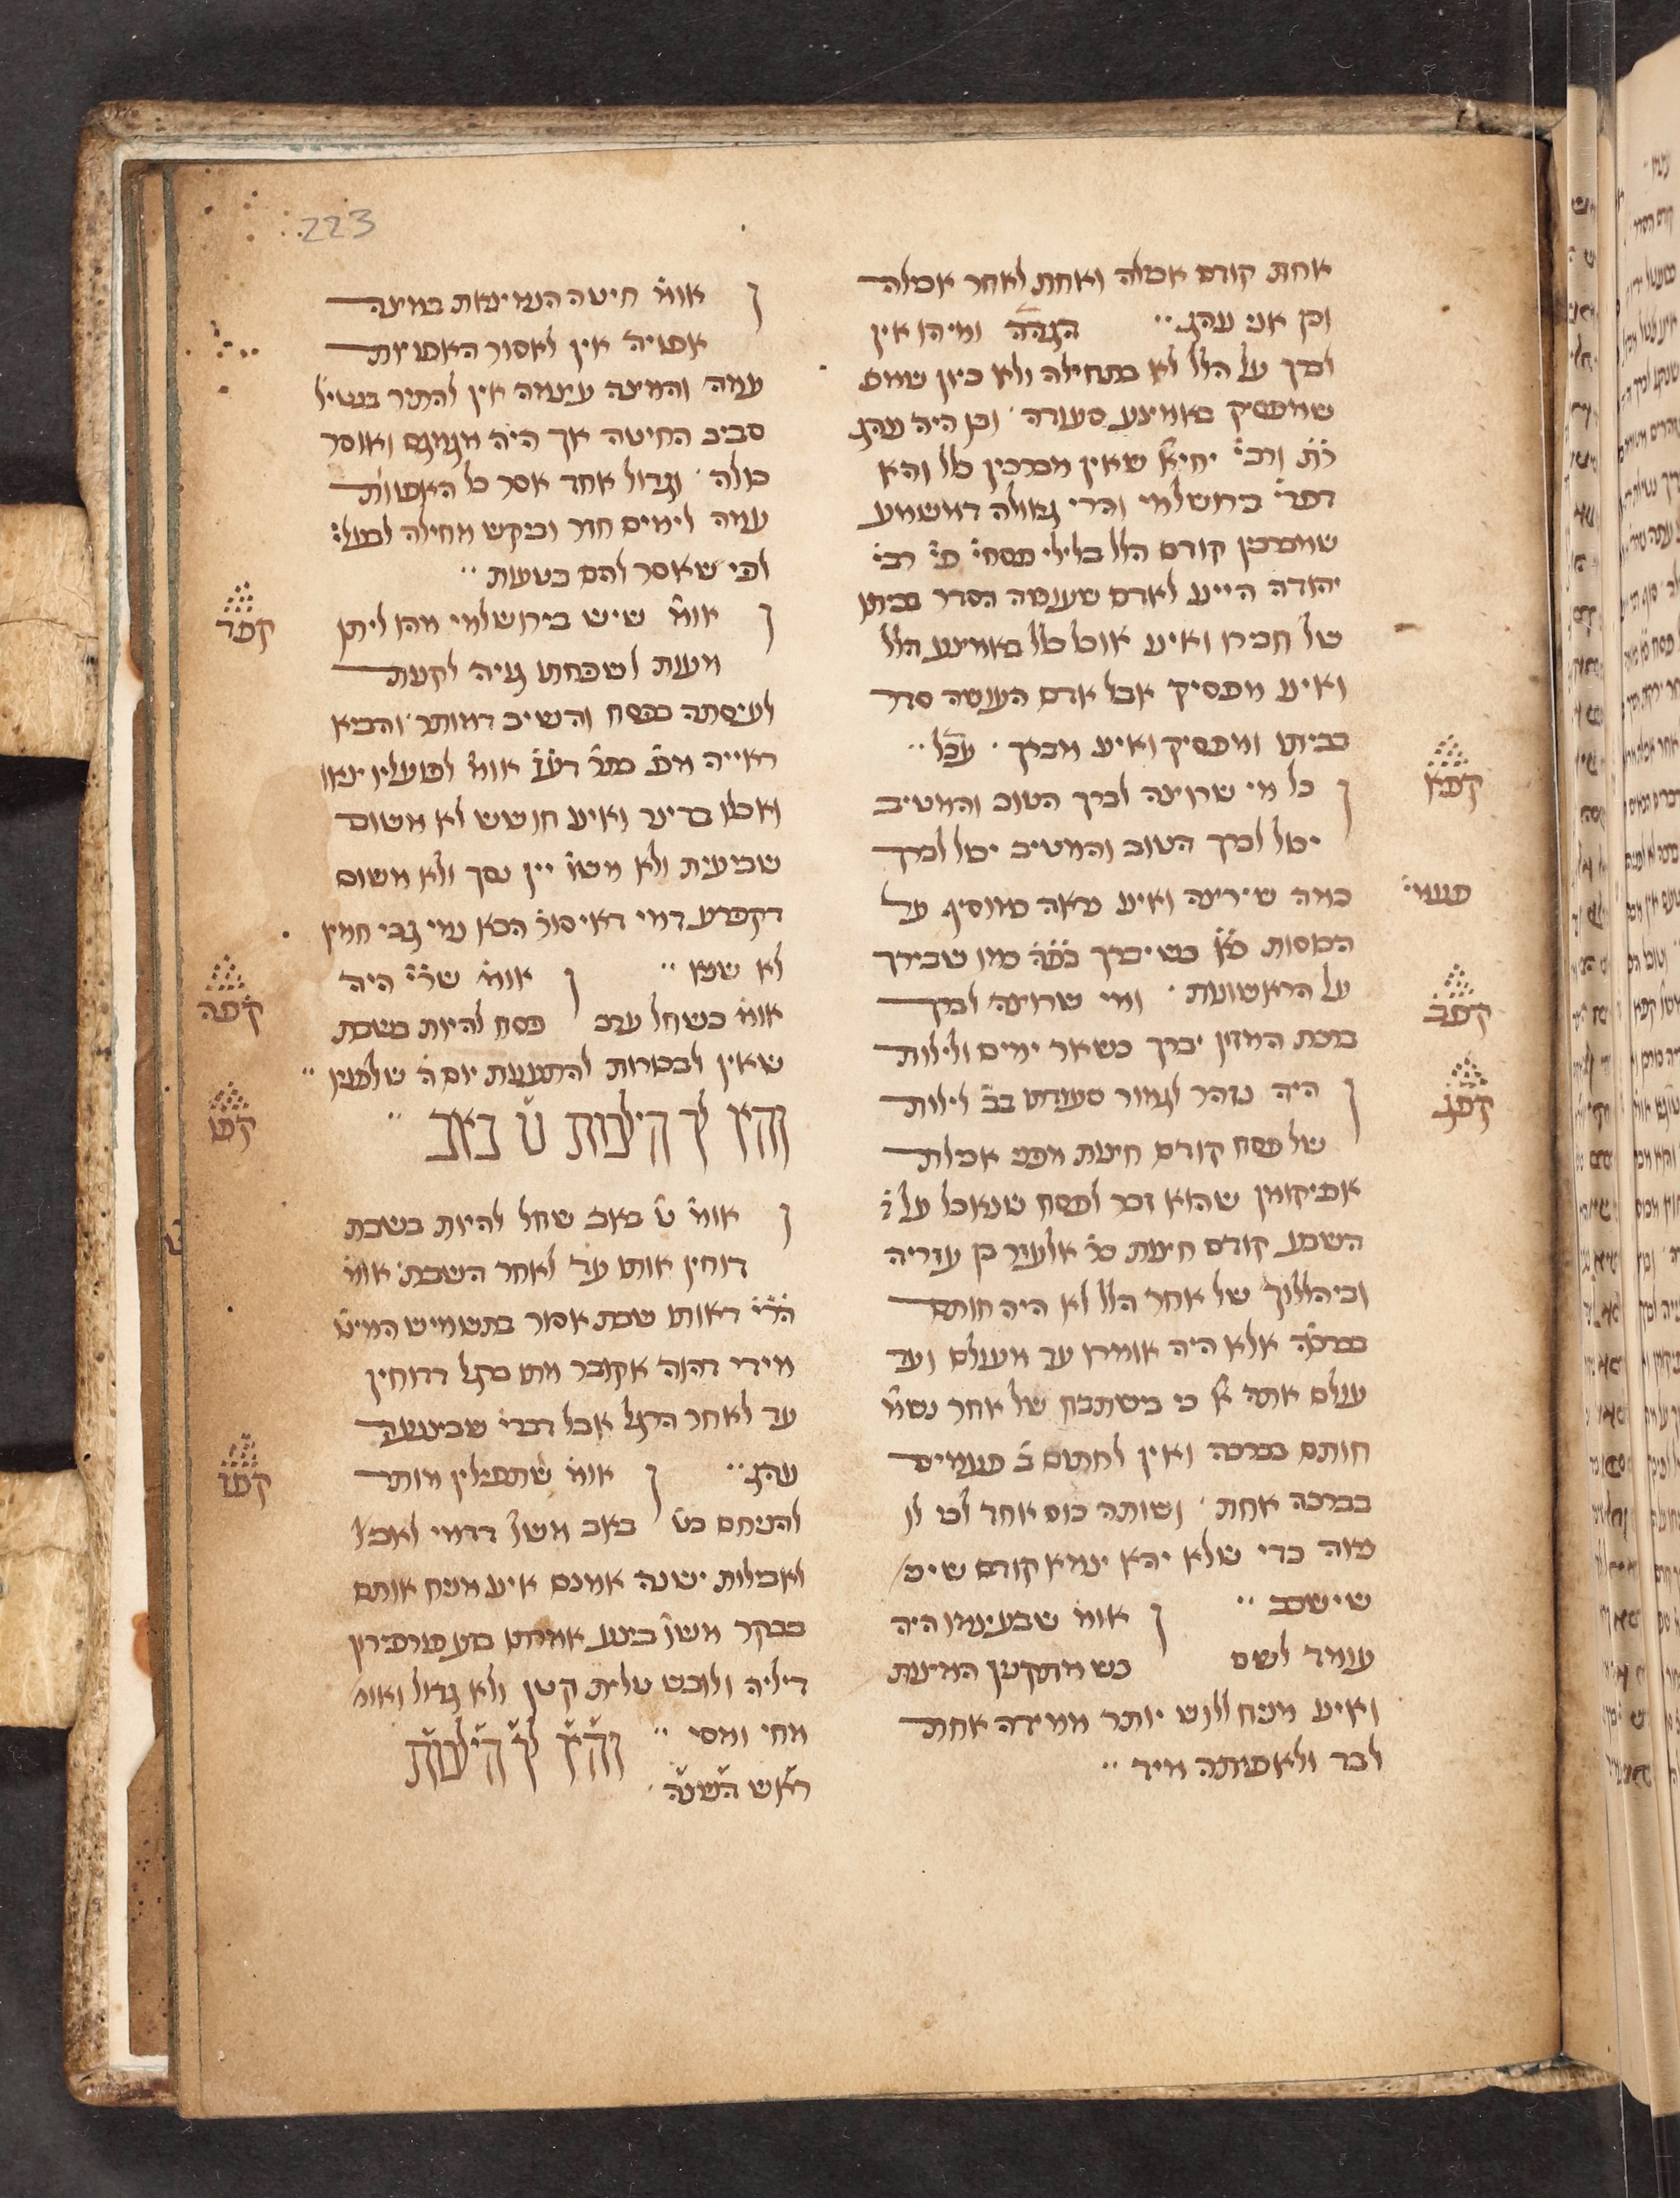 223
אחת קודם אכילה ואחת לאחר אכילה
וכן אני נוהג׃ הגהה ומיהו אין
לברך על הלל לא בתחילה ולא כיון
שמפסיק באמצע סעודה׳ וכן היה נוהג
ר״ת ורבי׳ יחיא׳ שאין מברכין כלל והא
דפרי׳ בירושלמי והרי גאולה דמשמע
שמברכין קודם הלל בלילי פסחי׳ פי׳ רבי׳
יהודה היינו לאדם שעושה הסדר בבית
של חבירו ואינו אוכל כלל באמצע הלל
ואינו מפסיק אבל אדם העושה סדר
בביתו ומפסיק ואינו מברך׳ עכ״ל׃
קפא
כל מי שרוצה לברך הטוב והמטיב
יכול לברך הטוב והמטיב יכול לברך
כמה שירצה ואינו נראה כמוסיף על פעמי׳
הכוסות כשיברך כמו שבירך
קפב
על הראשונות׳ ומי שרוצה לברך
ברכת המזון יברך כשאר ימים ולילות
קפג
היה נזהר לגמור סעודתו בב׳ לילות
של פסח קודם חצות מפני אכילת
אפיקומן שהוא זכר לפסח שנאכל על
השבע קודם חצות כר׳ אלעזר בן עזריה
וביהללוך של אחר הלל לא היה חותם
בברכה אלא היה אומרו עד מעולם ועד
עולם אתה א׳ כי בישתבח של אחר נשמ׳
חותם בברכה ואין לחתום ב׳ פעמים
בברכה אחת׳ ושותה כוס אחד לבו לו
מזה כדי שלא יהא צמא קודם שיש
שישכב׃ אומ׳ שבעצמו היה
עומד לשם כשמתקנין המצות
ואינו מניח ללוש יותר ממידה אחת
לבד ולאפותה מיד׃
אומ׳ חיטה הנמצאת במצה
אפויה אין לאסור האפויות
עמה והמצה עצמה אין להתיר בנטיל׳
סביב החיטה אך היה מגמגם ואוסר
כולה׳ וגדול אחד אסר כל האפוית
עמה לימים חזר וביקש מחילה לבעלי׳
לפי שאסר להם בטעות׃
קפד
אומ׳ שיש בירושלמי מהו ליתן
מעות לשפחתו גויה לקנות
לעיסתה בפסח והשיב דמותר׳ והביא
ראייה אומ׳ לפועלין צאו
ואכלו בדינר ואינו חושש לא משום
שביעית ולא משו׳ יין נסך ולא משום
דקפריע דמי דאיסור׳ הכא נמי גבי חמץ
קפה
לא שנא׃ אומ׳ שר״י היה
אומ׳ כשחל ערב פסח להיות בשבת
שאין לבכורות להתענות יום ה׳ שלפניו׃
קפו
והא לך הילכות ט׳ באב׃
אומ׳ ט׳ באב שחל להיות בשבת
דוחין אותו עד לאחר השבת׳ אומ׳
הר״י דאותו שבת אסור בתשמיש המיט׳
מידי דהוה אקובר מתו ברגל דדוחין
עד לאחר הרגל אבל דברי׳ שבצנעה
קפז
נוהג׃ אומ׳ שתפילין מותר
להניחם בט׳ באב משו׳ דדמי לאביל
ולאבילות ישנה אמנם אינו מניח אותם
בבקר משו׳ ביצע אמרתו בזע פורפירון
דיליה ולובש טלית קטן ולא גדול ואומ׳
מחי ומסי׃ והא לך הילכות
ראש השנה׳